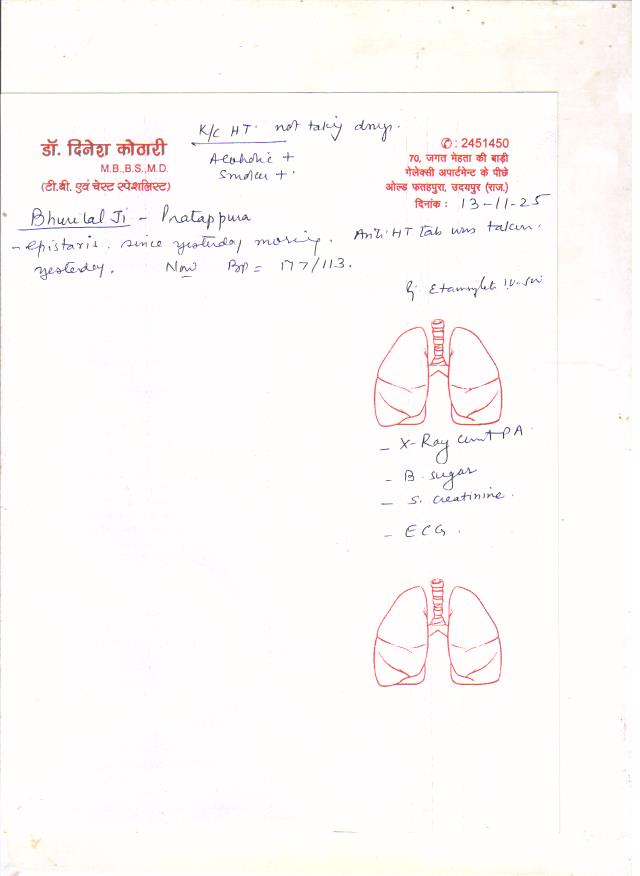 K/C HT. not taking drugs.
डॉ. दिनेश कोठारी
M.B.,B.S.,M.D.
(टी.बी. एवं चेस्ट स्पेशलिस्ट)
Alcoholic +
Smoker +
✆ : 2451450
70, जगत मेहता की बाड़ी
गेलेक्सी अपार्टमेन्ट के पीछे
ओल्ड फतहपुरा, उदयपुर (राज.)
दिनांक : 13-11-25
Bhurilal Ji - Pratappura
- epistaxis. since yesterday morning. Anti HT tab was taken.
yesterday. Now BP = 177/113.
- X-Ray PA
- B. sugar
- S. creatinine.
- ECG.